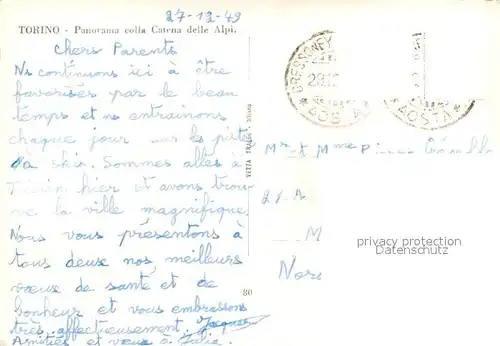 27-12-49
TORINO - Panorama colla Catena delle Alpi.
Chers Parents
Ns continuons ici à être
favorisés par le beau
temps et ns entrainons
chaque jour sur les pistes
de skis. Sommes allés à
Turin hier et avons trou-
vé la ville magnifique.
Nous vous présentons à
tous deux nos meilleurs
vœux de santé et de
bonheur et vous embrassons
très affectueusement. Jacques
Amitiés et vœux à Julia.
VETTA
80
GRESSONEY
29.12
* AOSTA
AOSTA *
Mr et Mme
M
privacy protection
Datenschutz